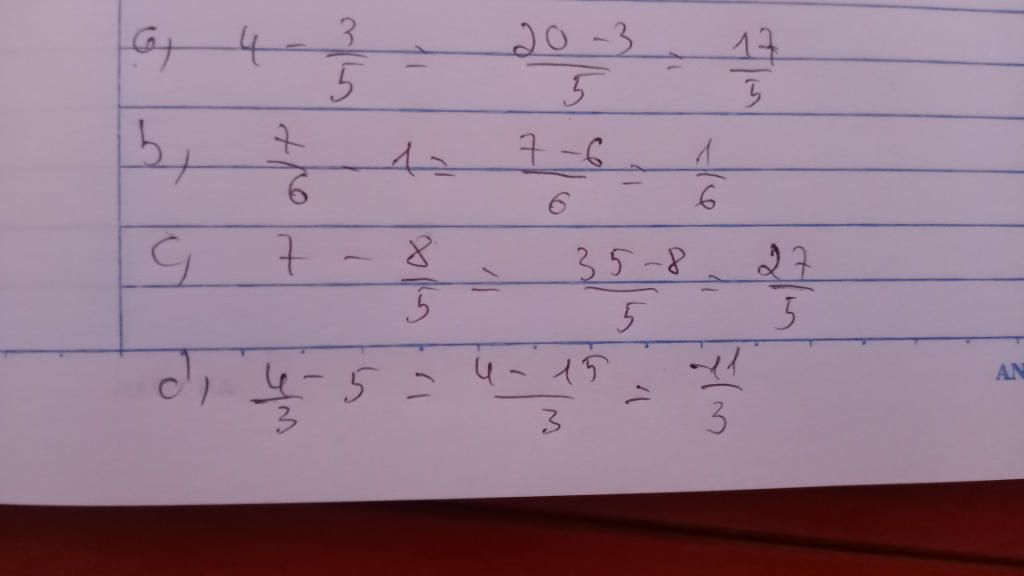 a, 4 - 3/5 = (20 - 3)/5 = 17/5
b, 7/6 - 1 = (7 - 6)/6 = 1/6
c, 7 - 8/5 = (35 - 8)/5 = 27/5
AN
d, 4/3 - 5 = (4 - 15)/3 = -11/3